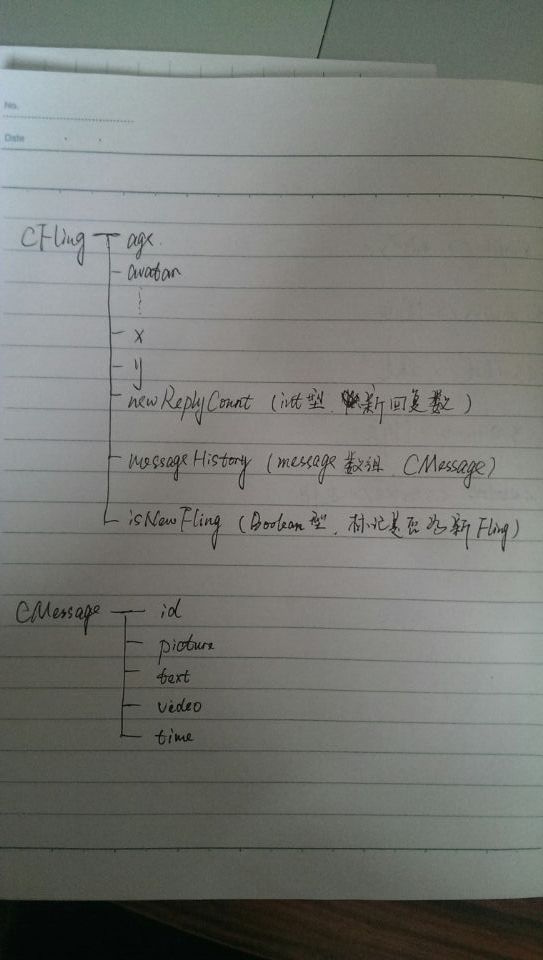 No.
Date
CFling age
avatar
⋮
x
y
newReplyCount (int型, 新回复数)
messageHistory (message 数组, CMessage)
isNewFling (Boolean型, 标记是否为新Fling)
CMessage id
picture
text
video
time